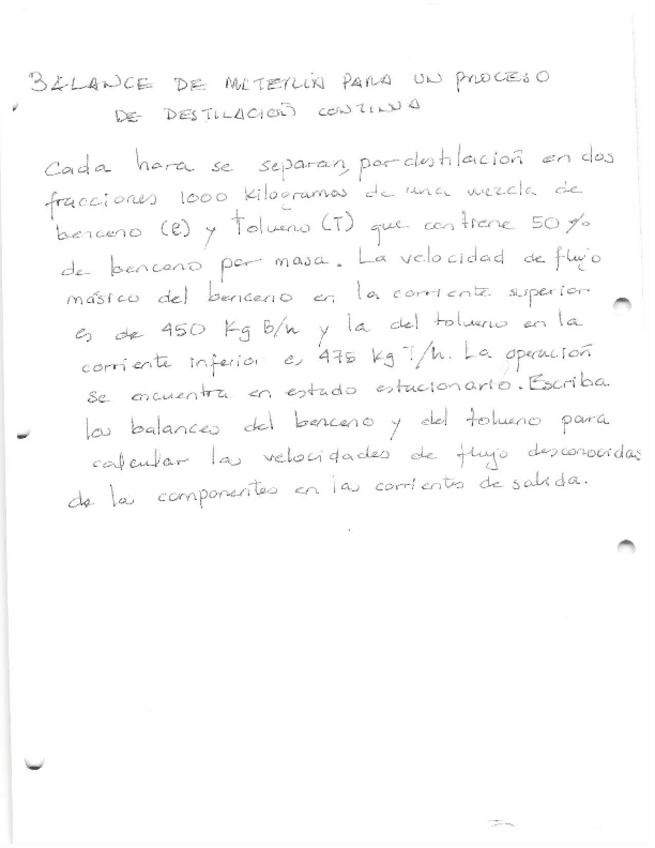 BALANCE DE MATERIA PARA UN PROCESO
DE DESTILACIÓN CONTINUA
Cada hora se separan, por destilación en dos
fracciones 1000 kilogramos de una mezcla de
benceno (B) y tolueno (T) que contiene 50%
de benceno por masa. La velocidad de flujo
másico del benceno en la corriente superior
es de 450 Kg B/h y la del tolueno en la
corriente inferior es 475 kg T/h. La operación
se encuentra en estado estacionario. Escriba
los balances del benceno y del tolueno para
calcular las velocidades de flujo desconocidas
de los componentes en las corrientes de salida.